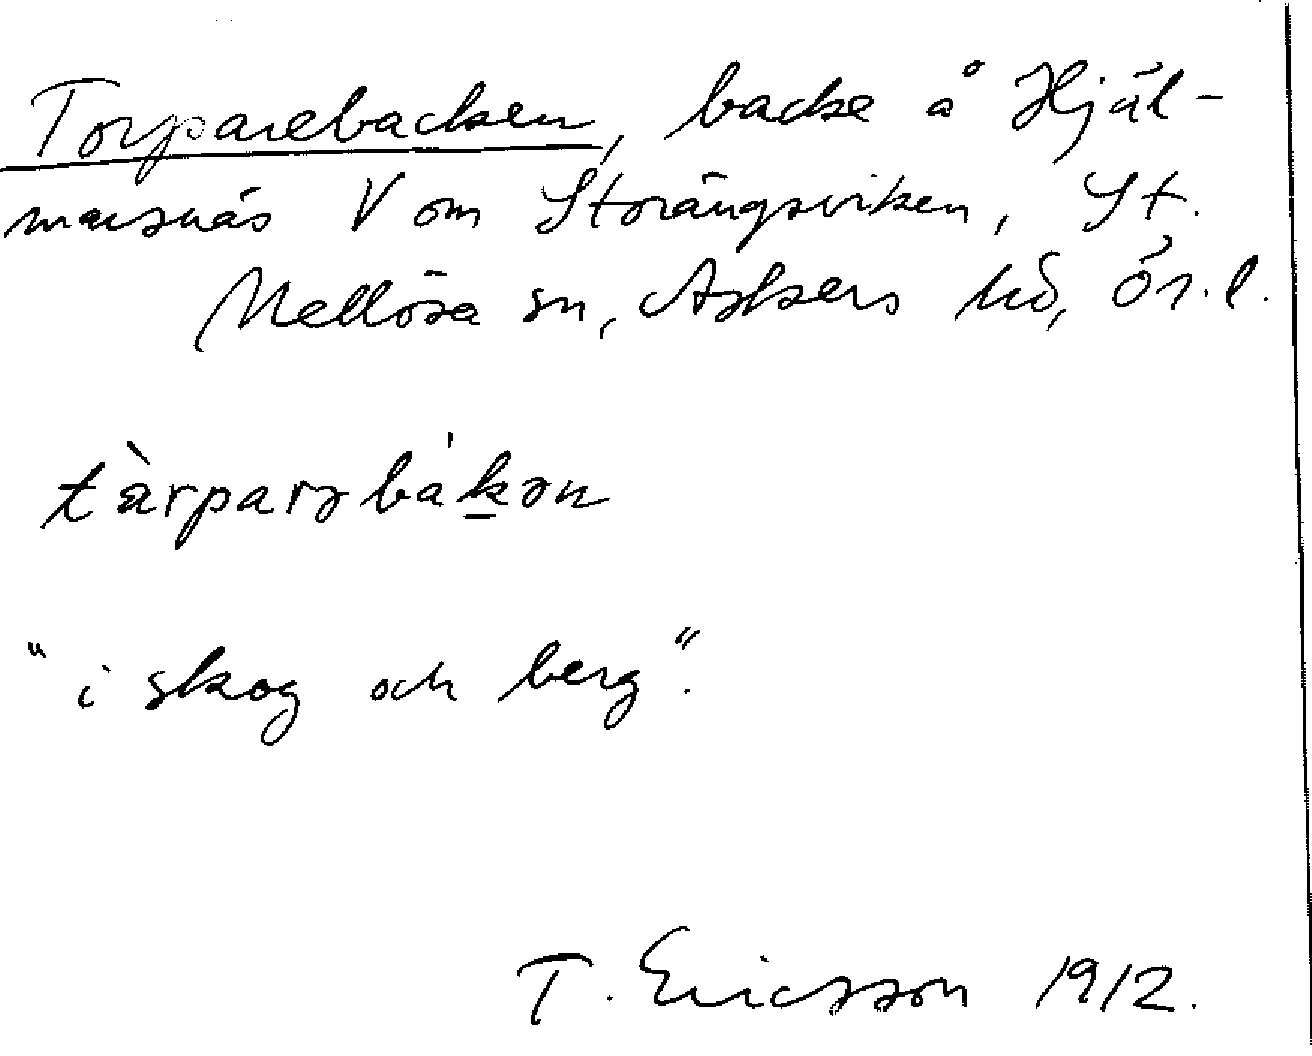 Torparebacken, backe å Hjäl-
marsnäs V om Storängsviken, St.
Mellösa sn, Askers hd, Ör. l.
tàrparəbákən
"i skog och berg".
T. Ericsson 1912.